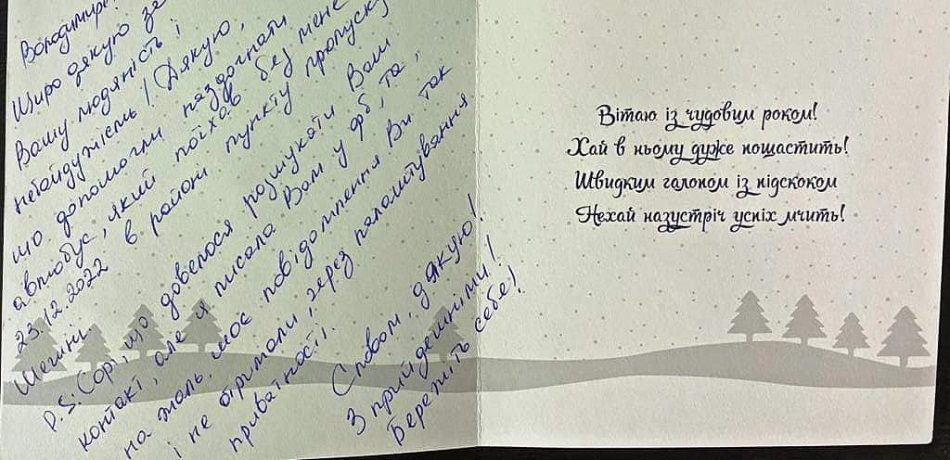 Володимире!
Щиро дякую за
Вашу людяність і
небайдужість! Дякую,
що допомогли наздогнати
автобус, який поїхав без мене
23.12.2022 в районі пункту пропуску
Шегині.
P.S: Сорі, що довелося розшукати Ваш
контакт, але я писала Вам у фб, та,
на жаль, моє повідомлення Ви так
і не отримали, через налаштування
приватності.
Словом, дякую!
З прийдешніми!
Бережіть себе!
Вітаю із чудовим роком!
Хай в ньому дуже пощастить!
Швидким галопом із підскоком
Нехай назустріч успіх мчить!